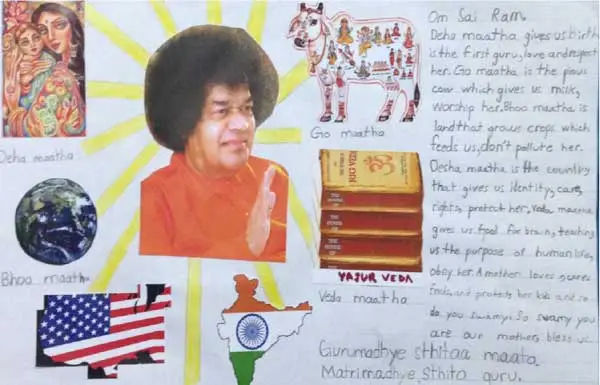 Om Sai Ram.
Deha maatha gives us birth
is the first guru, love and respect
her. Go maatha is the pious
cow which gives us milk,
worship her. Bhoo maatha is
land that grows crops which
feeds us, don't pollute her.
Desha maatha is the country
that gives us identity, care,
rights, protect her, Veda maatha
gives us food for brain, teaching
us the purpose of human life,
obey her. A mother loves, cares
feeds, and protects her kids and so
do you swamy. So swamy you
are our mother, bless us.
Deha maatha
Go maatha
Bhoo maatha
RIG VEDA
YAJUR VEDA
Veda maatha
Gurumadhye sthitaa maata
Matrimadhye sthito guru.